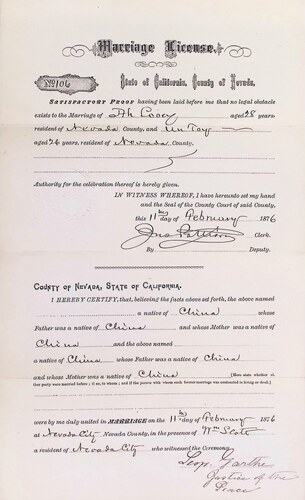 Marriage License.
No. 106
State of California, County of Nevada.
SATISFACTORY PROOF having been laid before me that no legal obstacle
exists to the Marriage of Ah Cooey aged 28 years
resident of Nevada County; and Un Toy
aged 26 years, resident of Nevada County.
Authority for the celebration thereof is hereby given.
IN WITNESS WHEREOF, I have hereunto set my hand
and the Seal of the County Court of said County,
this 11th day of February 1876
Jno Pattison Clerk.
By Deputy.
COUNTY OF NEVADA, STATE OF CALIFORNIA.
I HEREBY CERTIFY, that, believing the facts above set forth, the above named
a native of China whose
Father was a native of China and whose Mother was a native of
China and the above named
a native of China whose Father was a native of China
and whose Mother was a native of China (Here state whether ei-
ther party were married before; if so, to whom; and if the person with whom such former marriage was continued is living or dead.)
were by me duly united in MARRIAGE on the 11th day of February 1876
at Nevada City Nevada County, in the presence of Wm Scott
a resident of Nevada City who witnessed the Ceremony.
Leop. Garthe
Justice of the
Peace